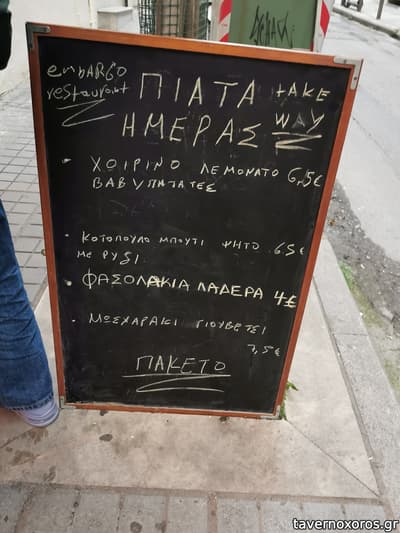 embargo
restaurant
ΠΙΑΤΑ
ΗΜΕΡΑΣ
take
way
• ΧΟΙΡΙΝΟ ΛΕΜΟΝΑΤΟ 6,5€
BABY ΠΑΤΑΤΕΣ
• ΚΟΤΟΠΟΥΛΟ ΜΠΟΥΤΙ ΨΗΤΟ 6,5€
ΜΕ ΡΥζΙ.
• ΦΑΣΟΛΑΚΙΑ ΛΑΔΕΡΑ 4€
• ΜΟΣΧΑΡΑΚΙ ΓΙΟΥΒΕΤΣΙ
7,5€
ΠΑΚΕΤΟ
tavernoxoros.gr